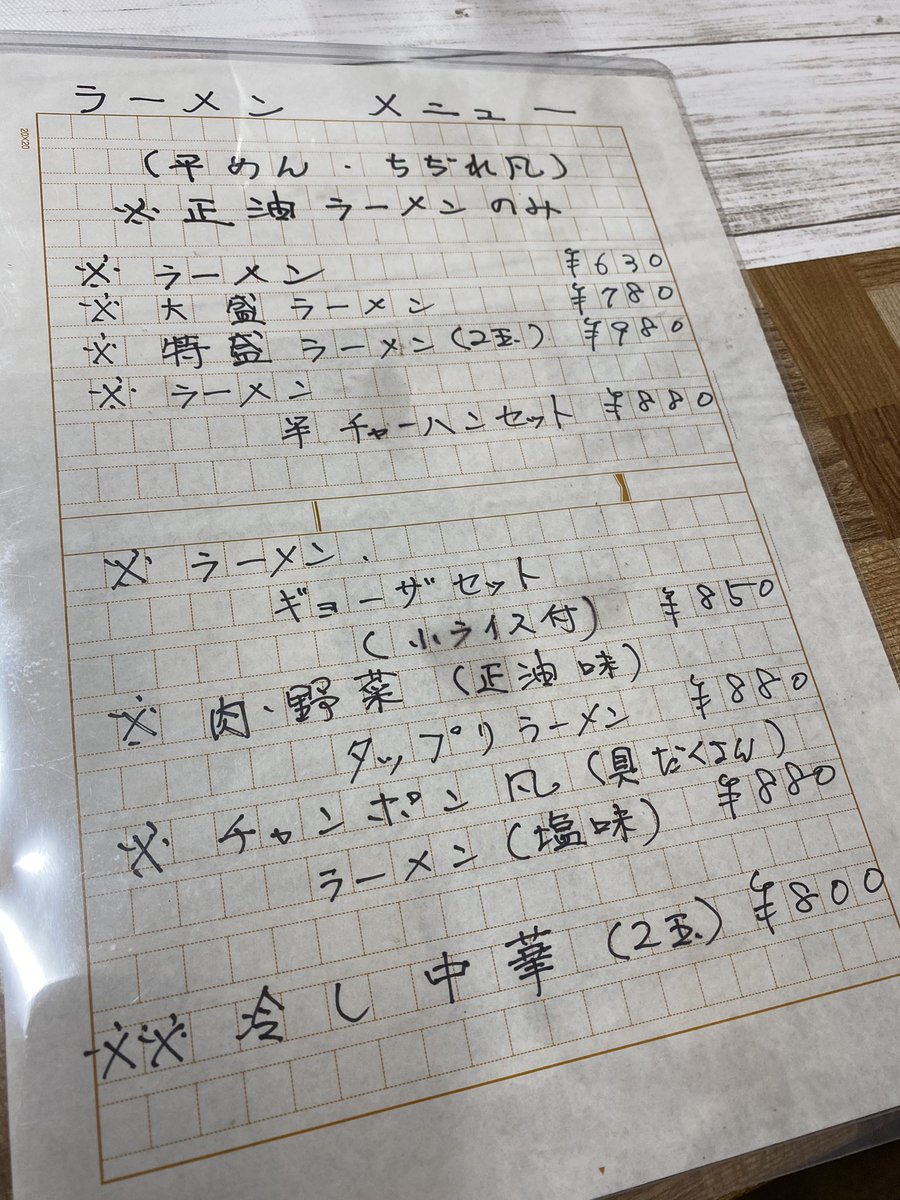 ラーメン メニュー
(平めん・ちぢれ凡)
※正油ラーメンのみ
※ ラーメン ¥630
※ 大盛ラーメン ¥780
※ 特盛ラーメン(2玉.) ¥980
※ ラーメン
半チャーハンセット ¥880
※ ラーメン.
ギョーザセット
(小ライス付) ¥850
※ 肉・野菜(正油味)
タップリラーメン ¥880
※ チャンポン凡(具だくさん)
ラーメン(塩味) ¥880
※※ 冷し中華(2玉.) ¥800
20X20